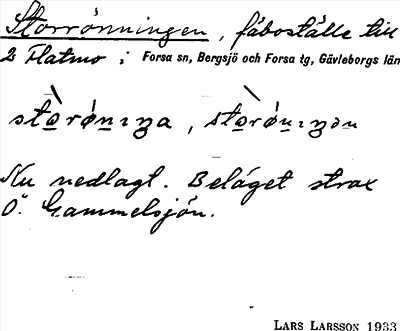 Storrönningen, fäboställe till
2 Flatmo; Forsa sn, Bergsjö och Forsa tg, Gävleborgs län
Nu nedlagt. Beläget strax
Ö. Gammelsjön.
LARS LARSSON 1933